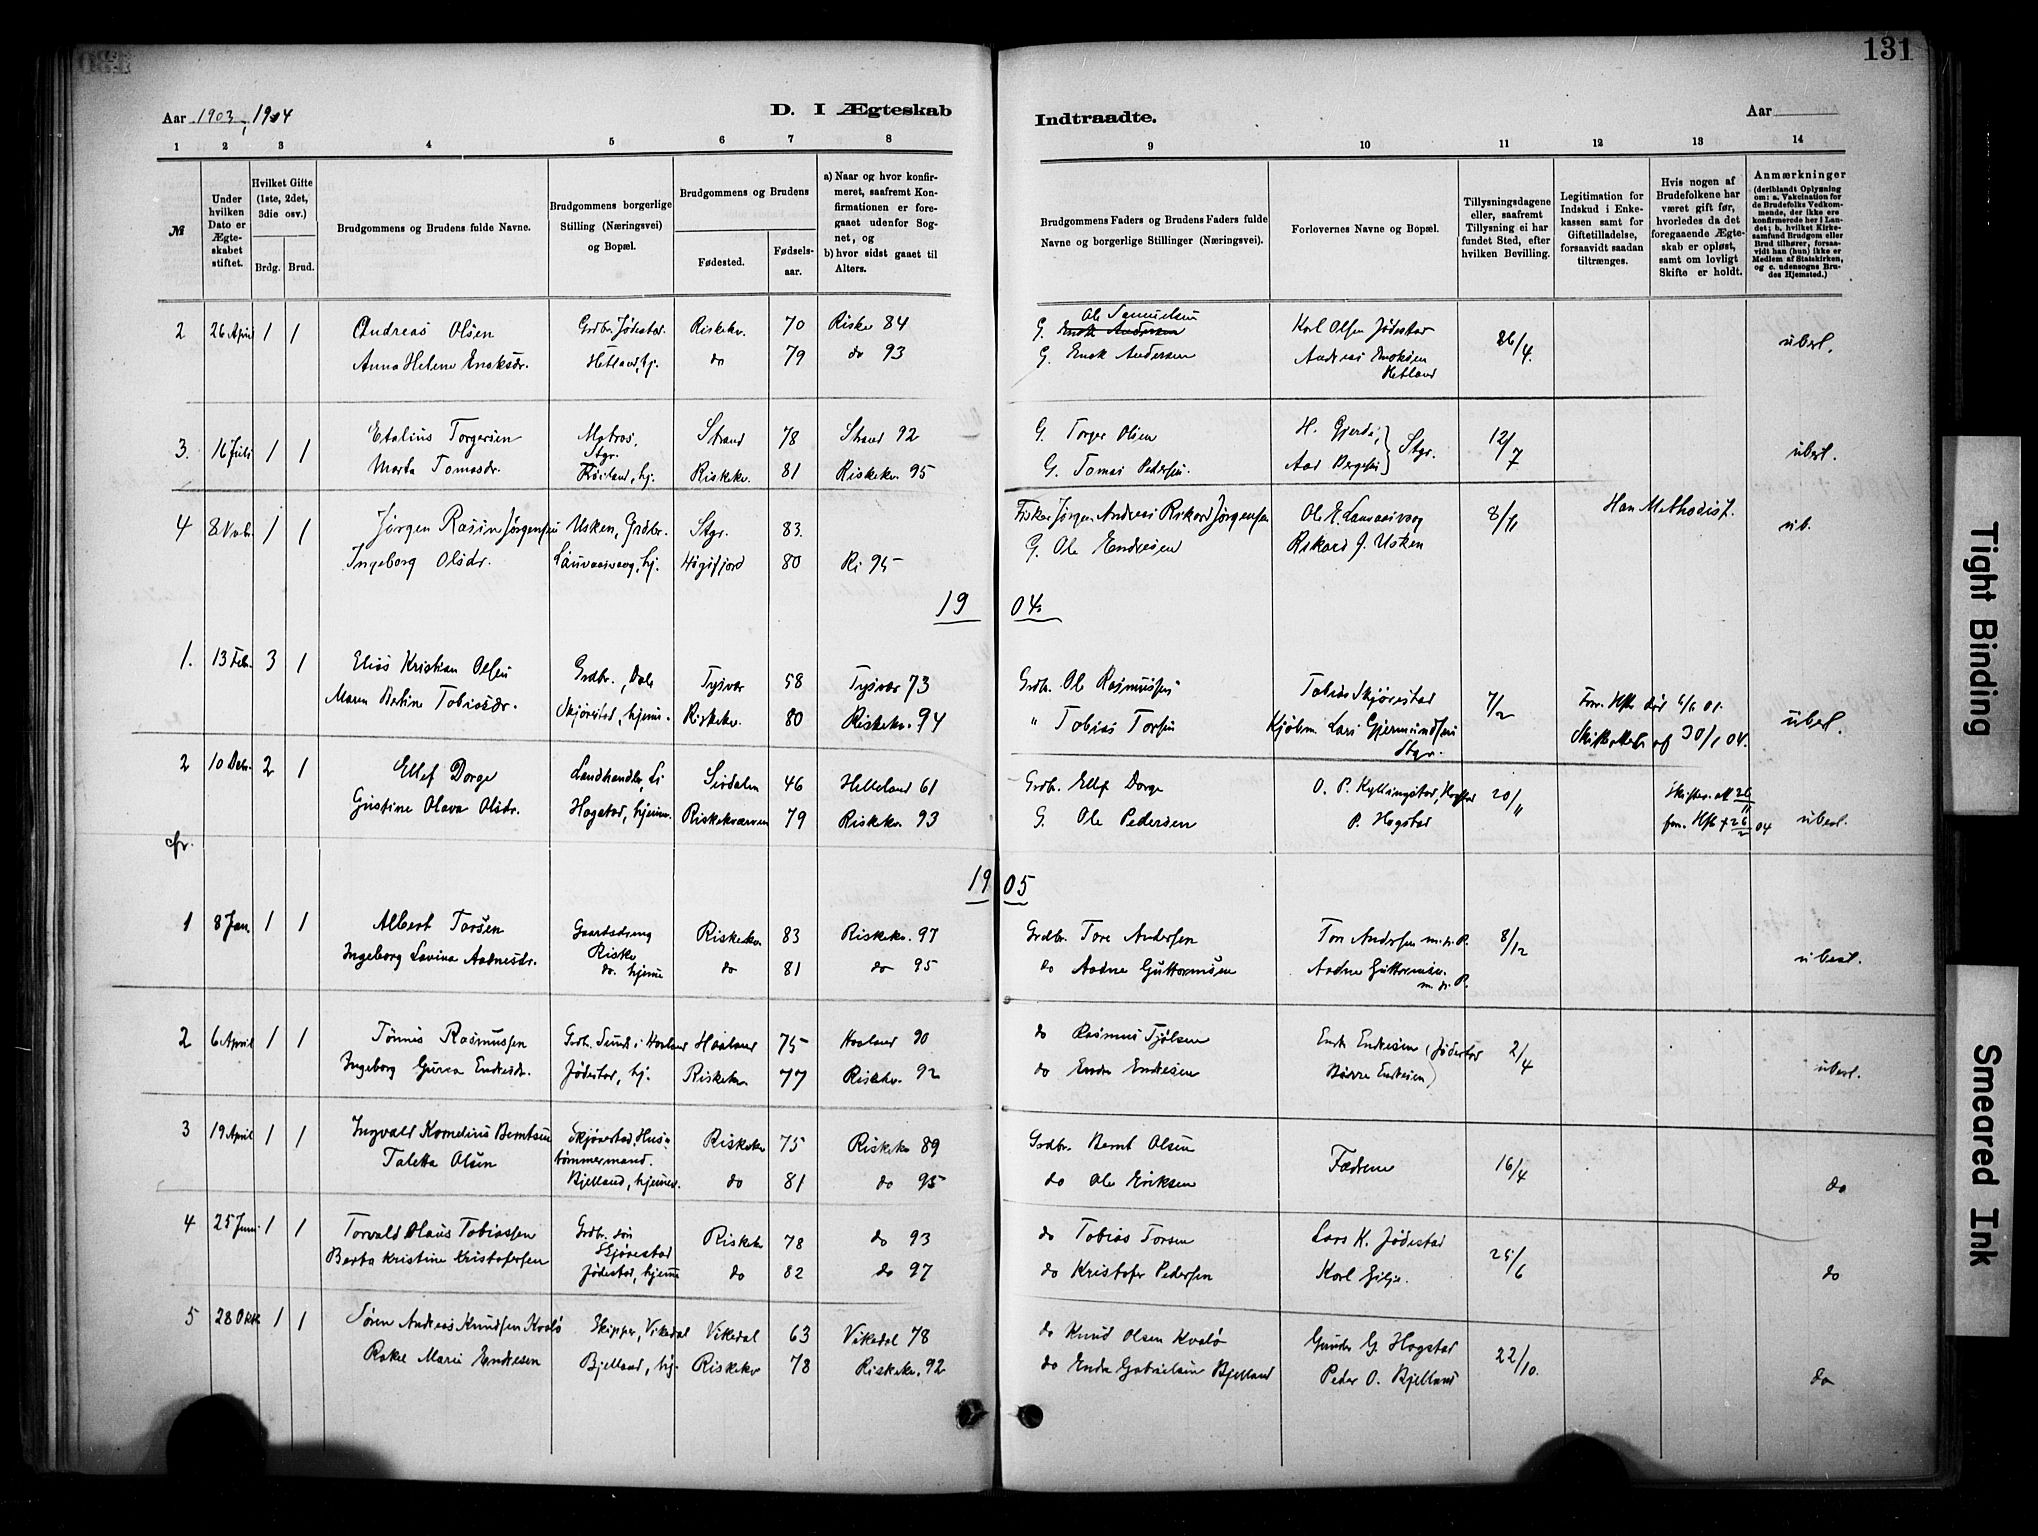 131
Aar 1903, 1904 D. I Ægteskab Indtraadte. Aar
1 2 3 4 5 6 7 8 9 10 11 12 13 14
№
Under hvilken Dato er Ægteskabet stiftet.
Hvilket Gifte (1ste, 2det, 3die osv.)
Brdg. Brud.
Brudgommens og Brudens fulde Navne.
Brudgommens borgerlige Stilling (Næringsvei) og Bopæl.
Brudgommens og Brudens
Fødested. Fødselsaar.
a) Naar og hvor konfirmeret, saafremt Konfirmationen er foregaaet udenfor Sognet, og
b) hvor sidst gaaet til Alters.
Brudgommens Faders og Brudens Faders fulde Navne og borgerlige Stillinger (Næringsvei).
Forlovernes Navne og Bopæl.
Tillysningsdagene eller, saafremt Tillysning ei har fundet Sted, efter hvilken Bevilling.
Legitimation for Indskud i Enkekassen samt for Giftetilladelse, forsaavidt saadan tiltrænges.
Hvis nogen af Brudefolkene har været gift før, hvorledes da det foregaaende Ægteskab er opløst, samt om lovligt Skifte er holdt.
Anmærkninger
(deriblandt Oplysning om: a. Vakcination for de Brudefolks Vedkommende, der ikke ere konfirmerede her i Landet; b. hvilket Kirkesamfund Brudgom eller Brud tilhører, forsaavidt han (hun) ikke er Medlem af Statskirken, og c. udensogns Brudes Hjemsted.)
2 26 April 1 1 Andreas Olsen Grdbr. Jødestad. Riskekv. 70 Riske 84 G. Ole Samuelsen Karl Olsen Jødestad 26/4. ubesl.
Anna Helene Enoksdr. Hetland, hj. do 79 do 93 G. Enok Andersen Andreas Enoksen Hetland
3. 16 Juli 1 1 Etalius Torgersen Matros, Stgr. Strand 78 Strand 92 G. Torger Olsen H. Gjerde, Stgr. 12/7 ubesl.
Marta Tomasdr. Røiland, hj. Riskekv. 81 Riskekv. 95 G. Tomas Pedersen. Aad Bergesen
4 8 Novbr. 1 1 Jørgen Rasin Jørgensen Usken, Grdbr. Stgr. 83. Fisker Jørgen Andreas Rikard Jørgensen Ole E. Lauvaasvaag 8/11 Han Methodist. ub.
Ingeborg Olsdr. Lauvaasvaag, hj. Høgsfjord 80 Ri 95 G. Ole Endresen Rikard J. Usken
1904.
1. 13 Feb. 3 1 Elias Kristian Olsen Grdbr., Dale Tysvær 58 Tysvær 73 Grdbr. Ole Rasmussen Tobias Skjørestad 7/2 Forr. Hstr død 6/6 01. ubesl.
Maren Bertine Tobiasdr. Skjørestad, hjemme. Riskekv. 80 Riskekv. 94 " Tobias Torsen Kjøbm. Lars Gjermundsen Stgr. Skifteattest af 30/1 04.
2 10 Debr. 2 1 Ellef Dorge Landhandler, Li Sirdalen 46 Helleland 61 Grdb. Ellef Dorge O. P. Kyllingstad, Hogstad 20/11 Skiftes. att 26/11 ubesl.
Gustine Olava Olsdr. Hogstad, hjemme. Riskekværven 79 Riskekv. 93 G. Ole Pedersen P. Hogstad forr. Hstr † 26/2 04
cfr.
1905
1 8 Jan. 1 1 Albert Torsen Gaardsdreng Riske Riskekv. 83 Riskekv. 97 Grdbr. Tore Andersen Tore Andersen m. fl. P. 8/12 ubesl.
Ingeborg Lovina Aadnesdr. do. hjemme do 81 do 95 do Aadne Guttormsen Aadne Guttormsen m. fl. P.
2 6 April 1 1 Tønnes Rasmussen Grdb. Sunde i Haaland Haaland 75 Haaland 90 do Rasmus Tjølsen Endre Endresen (Jødestad 2/4 ubesl.
Ingeborg Gurea Endresdr. Jødestad, hj. Riskekv. 77 Riskekv. 92 do Endre Endresen Børre Endresen)
3 19 April 1 1 Ingvald Kornelius Berntsen Skjørestad, Hustømmermand. Riskekv 75 Riskekv 89 Grdbr. Bernt Olsen Fædrene 16/4
Taletta Olsen Bjelland, hjemme. do 81 do 95 do Ole Eriksen do
4 25 Juni 1 1 Torvald Olaus Tobiassen Grdbr. søn Skjørestad Riskekv 78 do 93 do Tobias Torsen Lars K. Jødestad 25/6
Berta Kristine Kristofersen Jødestad, hjemme do 82 do 97 do Kristofer Pedersen Karl Gilje. do
5 28 Okt 1 1 Søren Andreas Knudsen Kvalø Skipper, Vikedal Vikedal 63 Vikedal 78 do Knud Olsen Kvalø Gunder G. Hogstad 22/10.
Rakel Marie Endresen Bjelland, hj. Riskekv 78 Riskekv. 92 do Endre Gabrielsen Bjelland Peder O. Bjelland do
Tight Binding
Smeared Ink